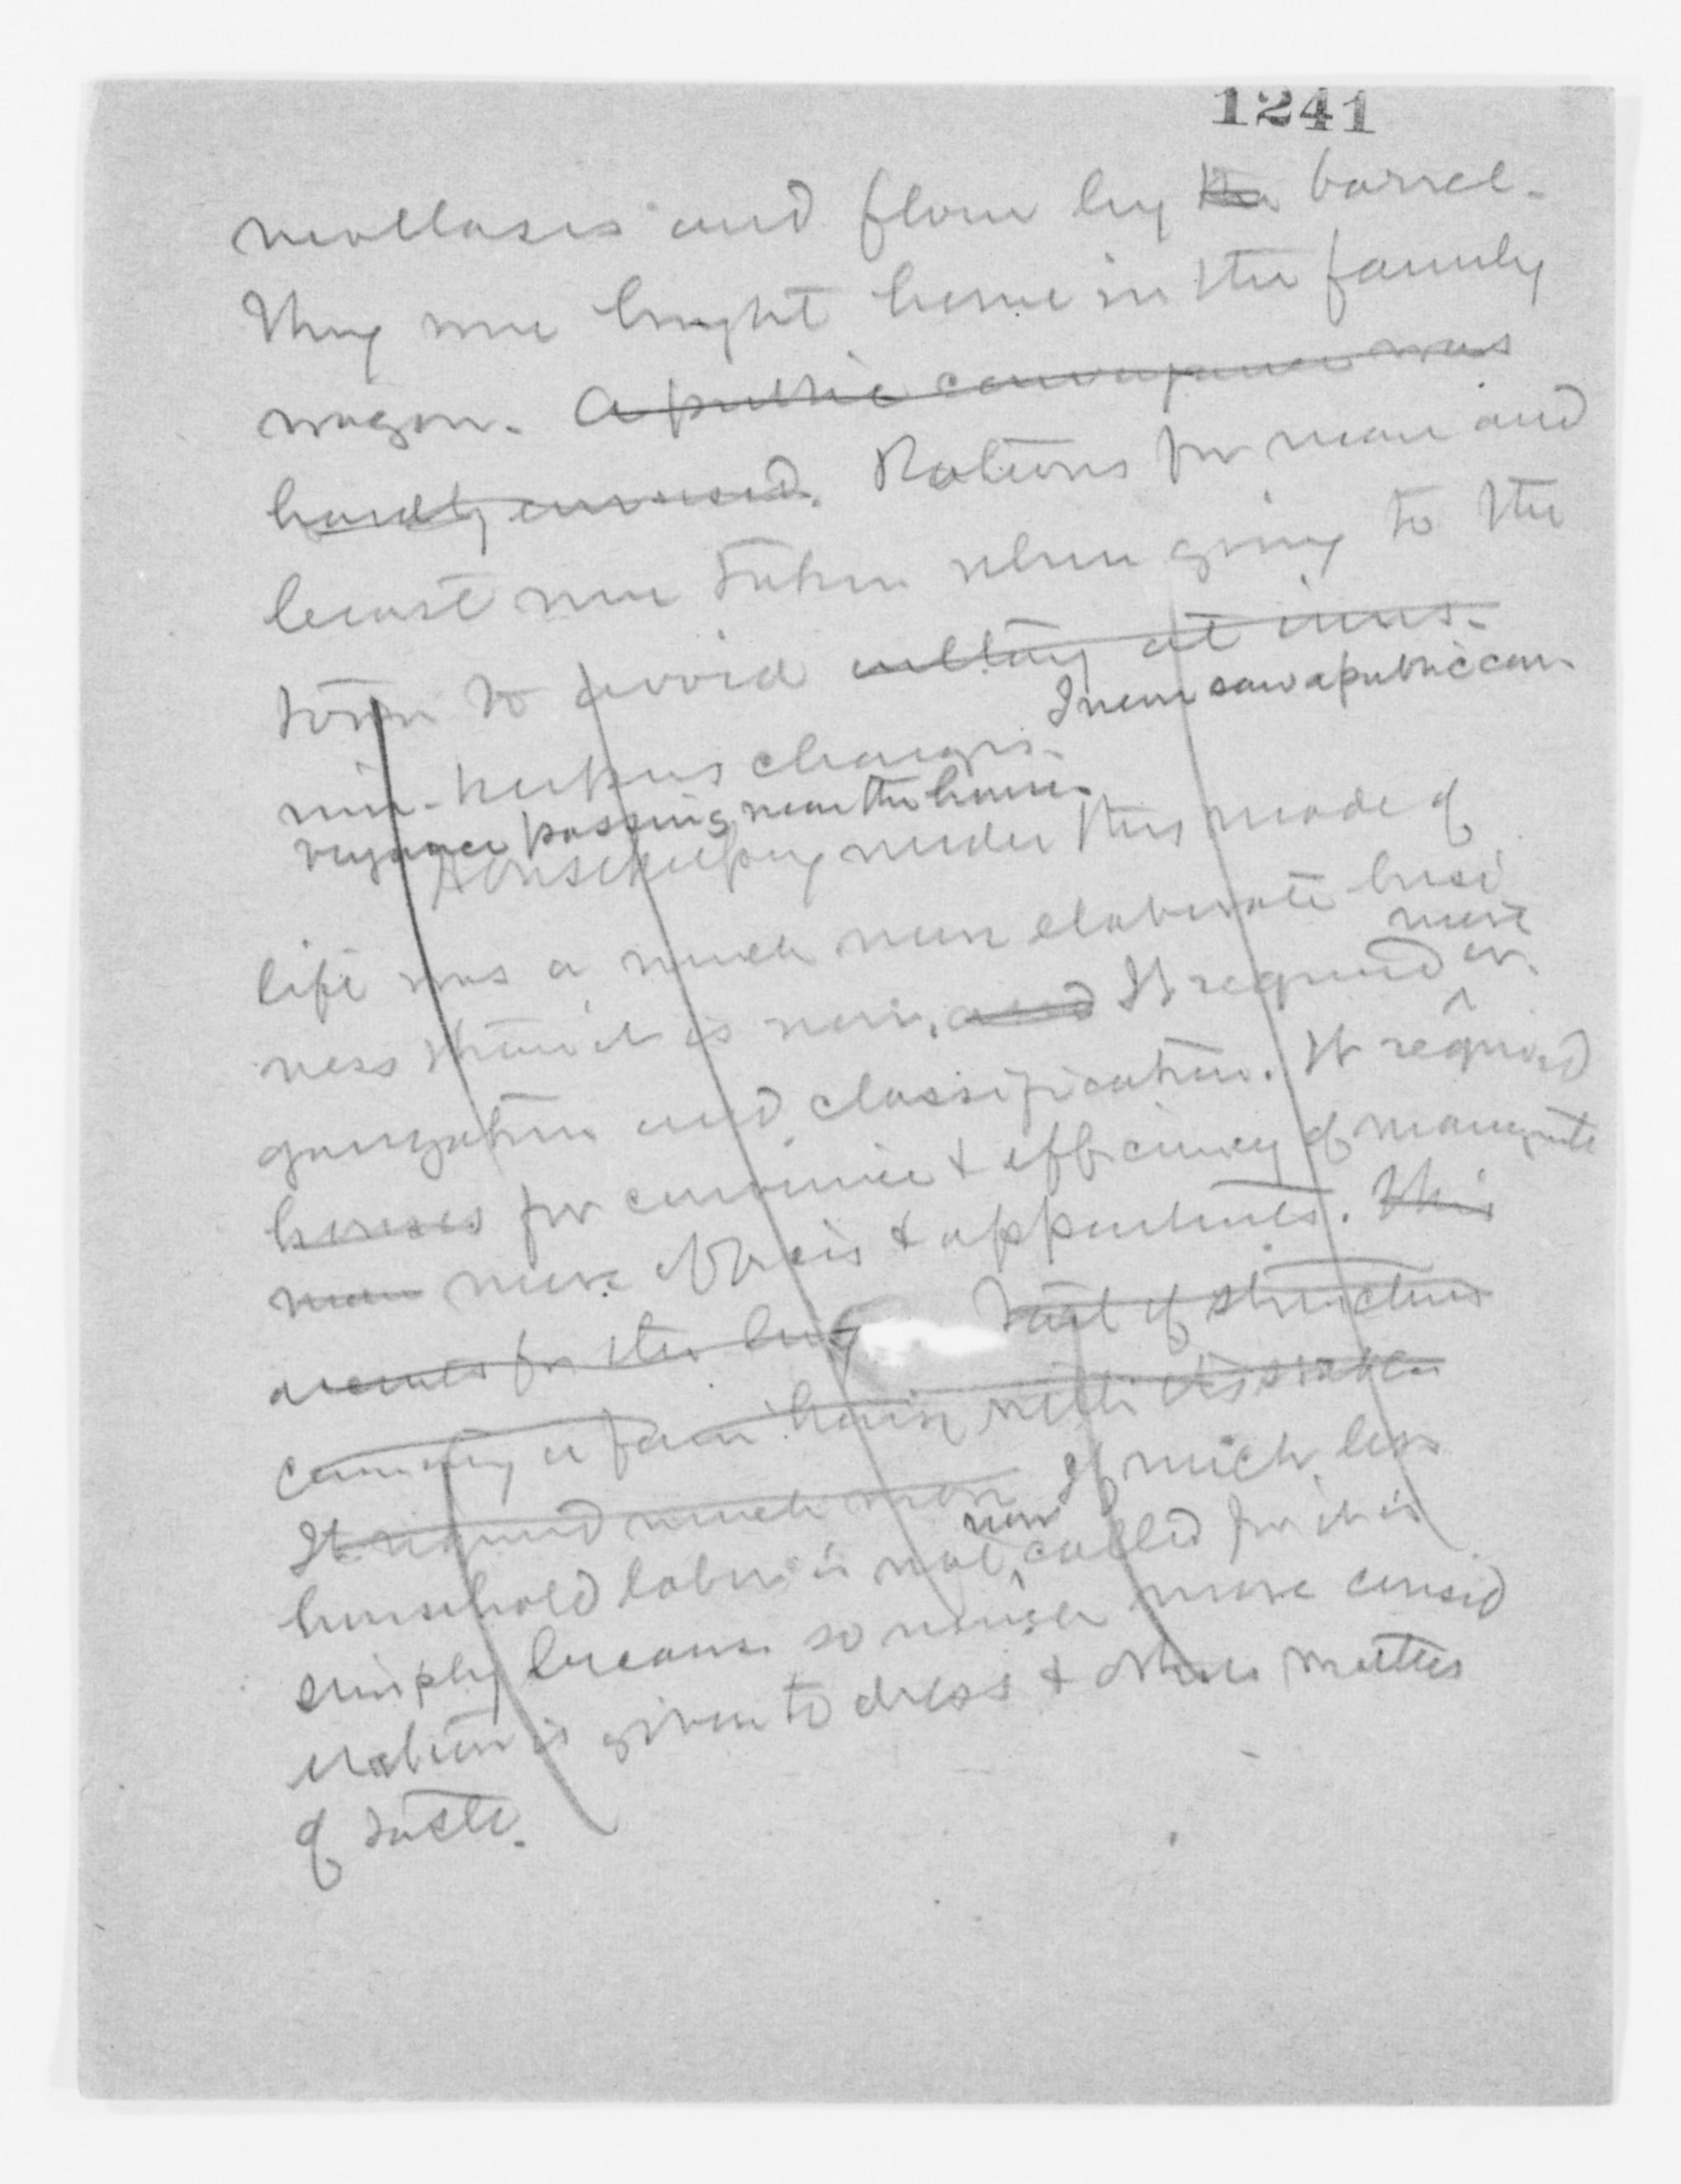 1241
mollasses and flour by the barrel.
They were brought home in the family
wagon. A public conveyance was
hardly ever used. Rations for man and
beast were taken when going to the
town to avoid at inns.
I never saw a public con-
inn-keepers charges.
veyance passing near the house.
Housekeeping under this mode of
life was a much more elaborate busi
ness than it is now, and It required more or-
ganization and classification. It required
houses for convenience & efficiency of
more & appartments. This
accounts for the of structures
a farm house, with its
It required much more If much less
household labor is not now called for it is
simply because so much more consid
eration is given to dress & other matters
of taste.